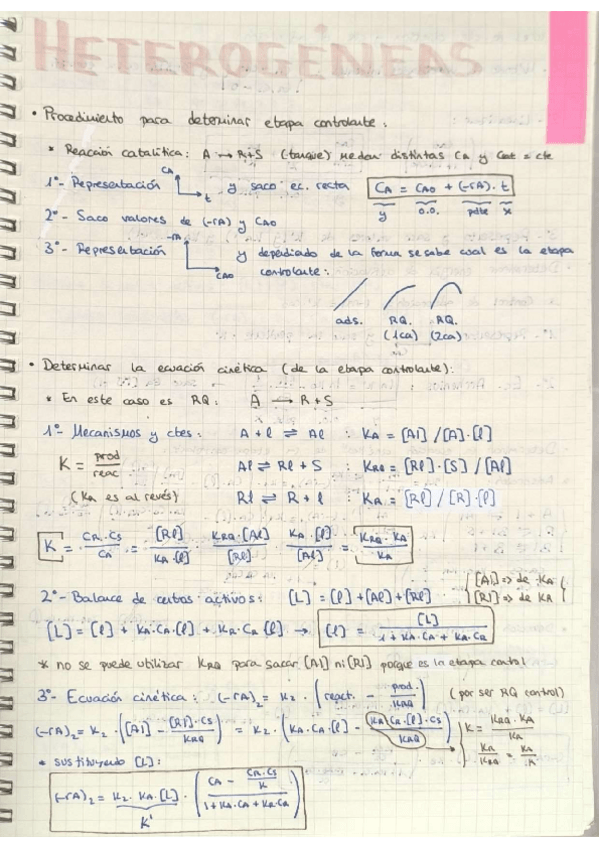 HETEROGÉNEAS
• Procedimiento para determinar etapa controlante:
* Reacción catalítica: A → R+S (tanque) me dan distintas CA y Ccat = cte
1º- Representación CA t y saco ec. recta CA = CAO + (-rA) · t
y o.o. pdte x
2º- Saco valores de (-rA) y CAO
3º- Representación -rA CAO y dependiendo de la forma se sabe cual es la etapa
controlante:
ads. RQ. RQ.
(1ca) (2ca)
• Determinar la ecuación cinética (de la etapa controlante):
* En este caso es RQ: A → R + S
1º- Mecanismos y ctes: A + l ⇌ Al : KA = [Al] / [A]·[l]
K = prod / reac Al ⇌ Rl + S : KRQ = [Rl]·[S] / [Al]
(KR es al revés) Rl ⇌ R + l : KR = [Rl] / [R]·[l]
K = CR·CS / CA = [Rl] / KR·[l] · KRQ·[Al] / [Rl] · KA·[l] / [Al] = KRQ·KA / KR
2º- Balance de centros activos: [L] = [l] + [Al] + [Rl] [Al] => de KA
[Rl] => de KR
[L] = [l] + KA·CA·[l] + KR·CR·[l] → [l] = [L] / 1 + KA·CA + KR·CR
* no se puede utilizar KRQ para sacar [Al] ni [Rl] porque es la etapa control
3º- Ecuación cinética: (-rA)2 = K2 · (react. - prod. / KRQ) (por ser RQ control)
(-rA)2 = K2 · ([Al] - [Rl]·CS / KRQ) = K2 · (KA·CA·[l] - KR·CR·[l]·CS / KRQ) K = KRQ·KA / KR
KR / KRQ = KA / K
• sustituyendo [L]:
(-rA)2 = K2·KA·[L] · (CA - CR·CS / K / 1 + KA·CA + KR·CR)
K'